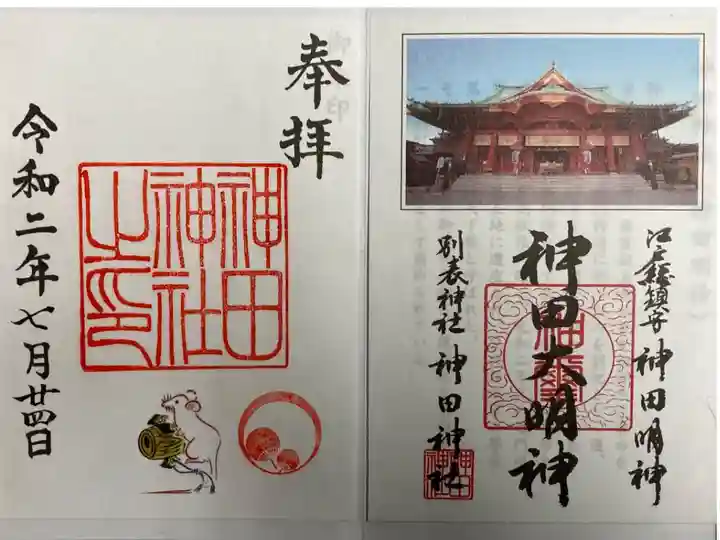 奉拝
神田
神社
之印
令和二年七月廿四日
江戸総鎮守 神田明神
神田大明神
別表神社 神田神社